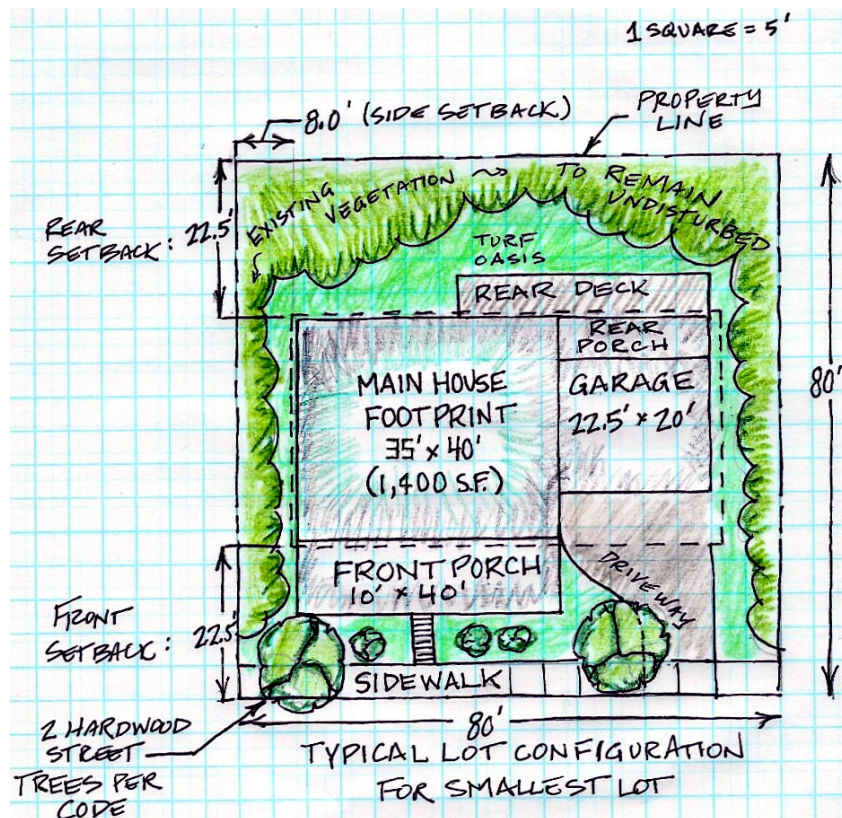 1 SQUARE = 5'
8.0' (SIDE SETBACK)
PROPERTY
LINE
EXISTING
VEGETATION ⤳ TO REMAIN
UNDISTURBED
REAR
SETBACK: 22.5'
TURF
OASIS
REAR DECK
REAR
PORCH
MAIN HOUSE
FOOTPRINT
35' x 40'
(1,400 S.F.)
GARAGE
22.5' x 20'
80'
FRONT PORCH
10' x 40'
DRIVEWAY
FRONT
SETBACK: 22.5'
SIDEWALK
80'
2 HARDWOOD
STREET
TREES PER
CODE
TYPICAL LOT CONFIGURATION
FOR SMALLEST LOT